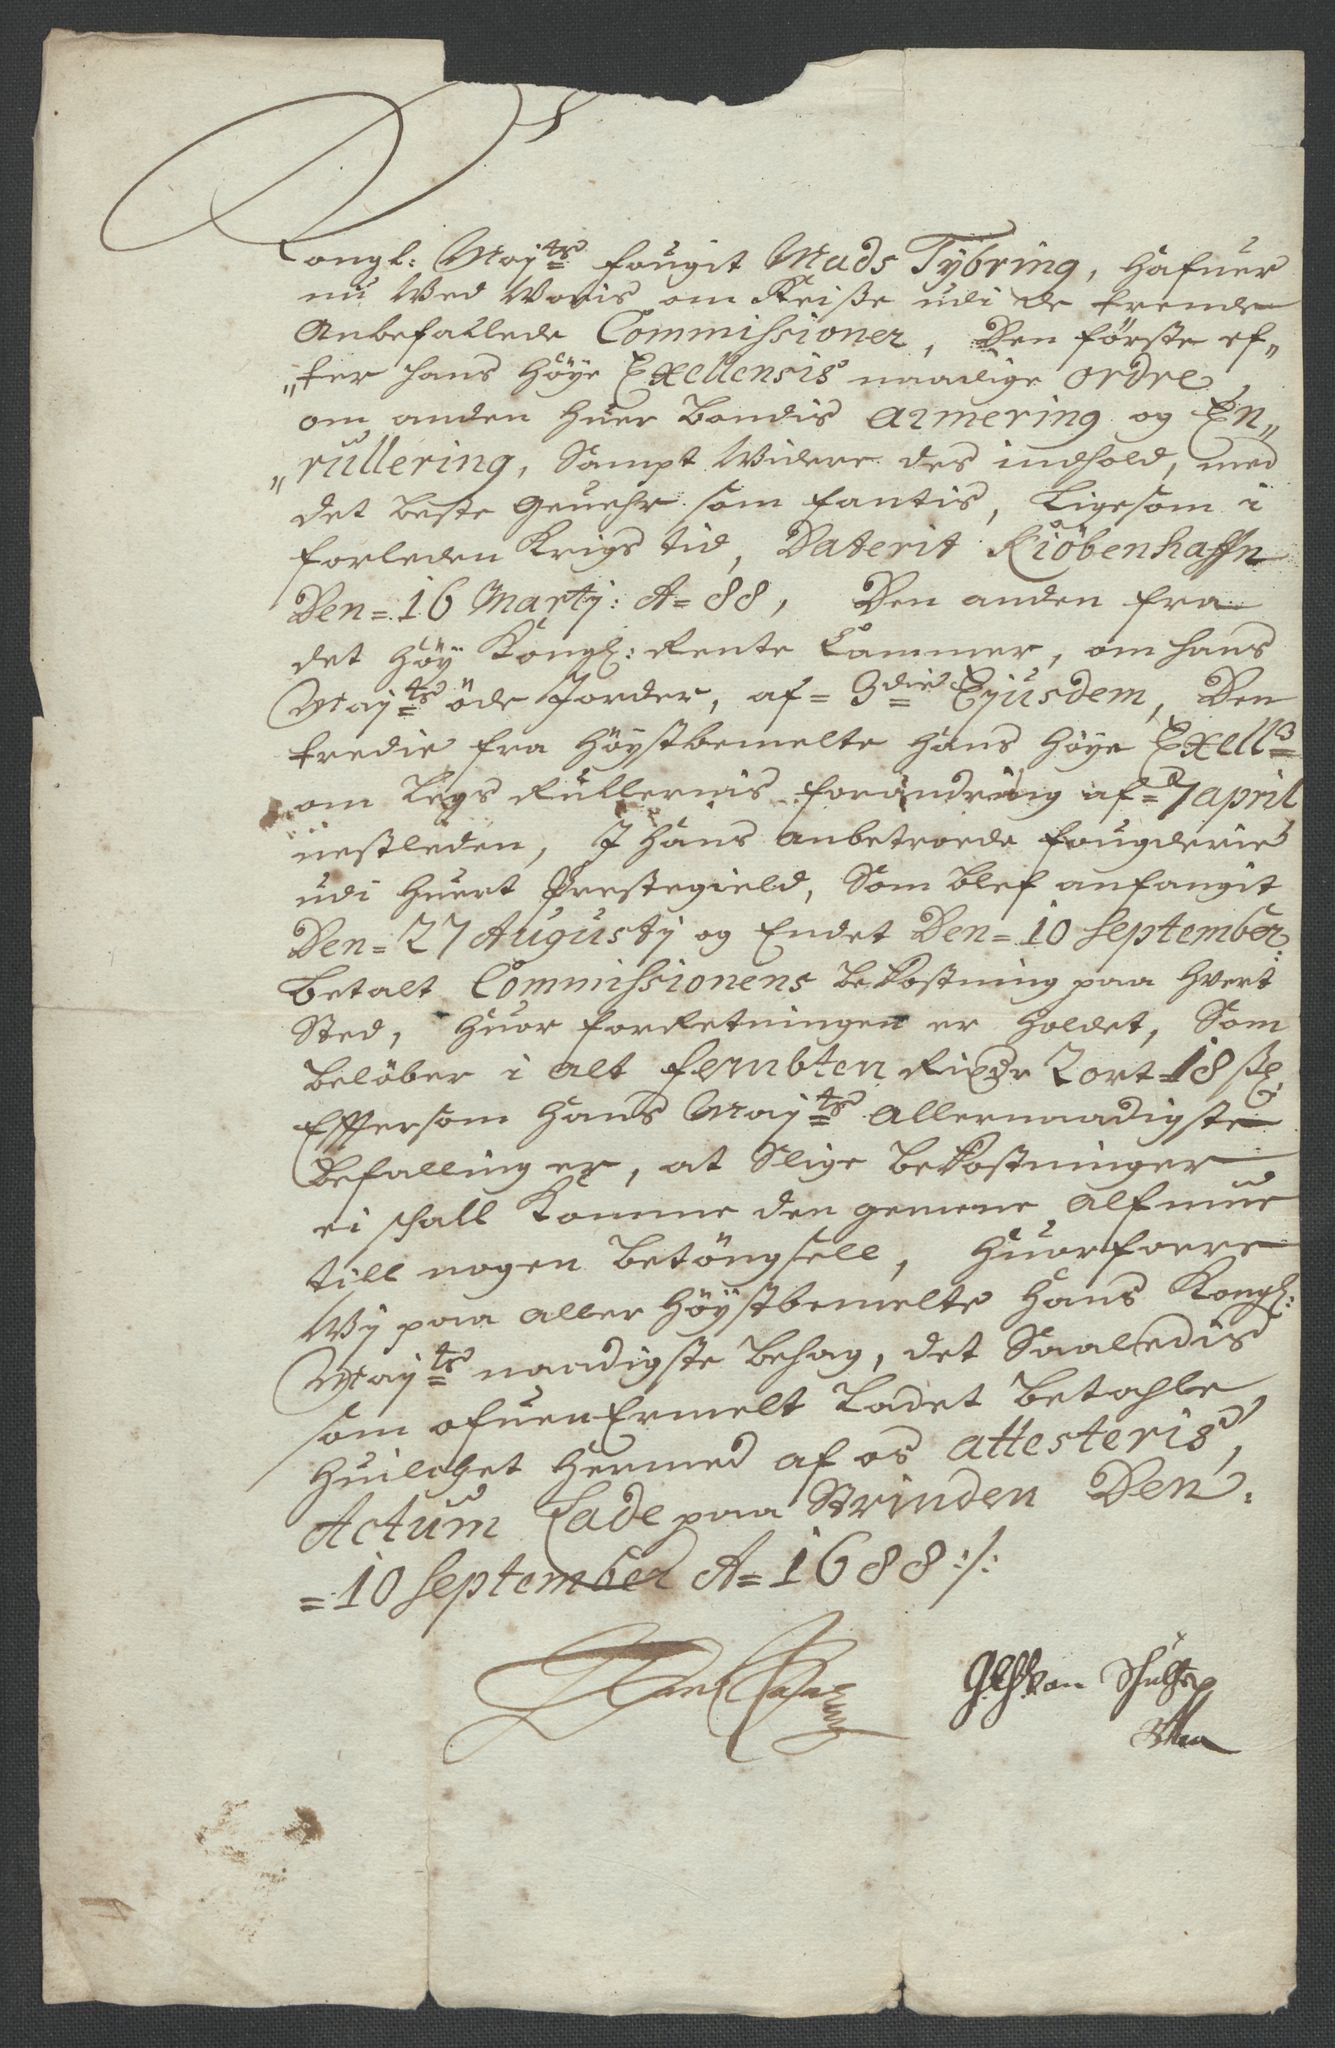 Kongl: Mayts fougit Mads Tybring, hafuer
nu Wed Woris om Reiße udi de trende
Anbefallede Commissioner, Den förste ef„
„ter hans höye Exellensis naadige ordre,
om anden huer Bondis armering og En„
„rullering, Sampt Widere des indhold, med
det beste Geuehr som fantis, Ligesom i
forleden Krigs tid, Daterit Kiöbenhaffn
Den = 16 Martij: A = 88, Den anden fra
det höy Kongl: Rente Cammer, om hans
Mayts öde Jorder, af = 3die Ejusdem, Den
tredie fra höystbemelte hans höye Exells
om Legs Rullernis forandring af = 7 april
nestleden, I hans anbetroede fougderie
udi huert Prestegield, Som blef anfangit
Den = 27 Augusty og Endet Den = 10 September:
betalt Commissionens bekostning paa hvert
Sted, huor forretningen er holdet, Som
belöber i alt fembten Rixdr 2 ort = 18 ßl,
Effersom hans Mayts allernaadigste
befalling er, at Slige bekostninger
ei schall komme den gemene Almue
till nogen betöngsell, huorfore
Wy paa aller höystbemelte hans Kongl:
Mayts naadigste behag, det Saaledis
som ofuenermelt ladet betahle,
huilchet hermed af os attesteris,
Actum Lade paa Strinden Den.
= 10 September A = 1688 :/:
von Schultz